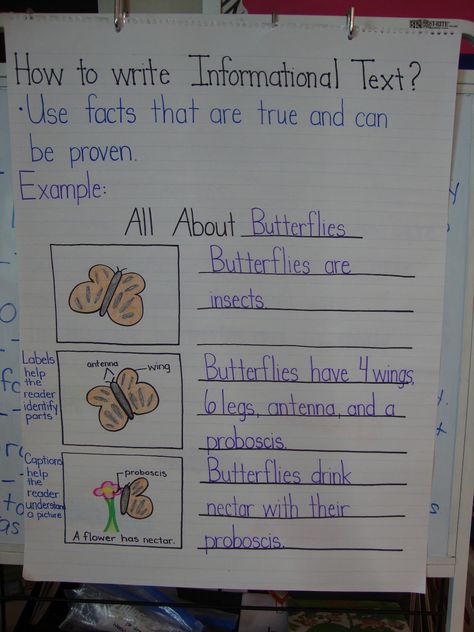 How to write Informational Text?
• Use facts that are true and can
be proven.
Example:
All About Butterflies
Butterflies are
insects.
Labels
help
the
reader
identify
parts
antenna
wing
Butterflies have 4 wings,
6 legs, antenna, and a
proboscis.
Captions
help
the
reader
understand
a picture
proboscis
A flower has nectar.
Butterflies drink
nectar with their
proboscis.